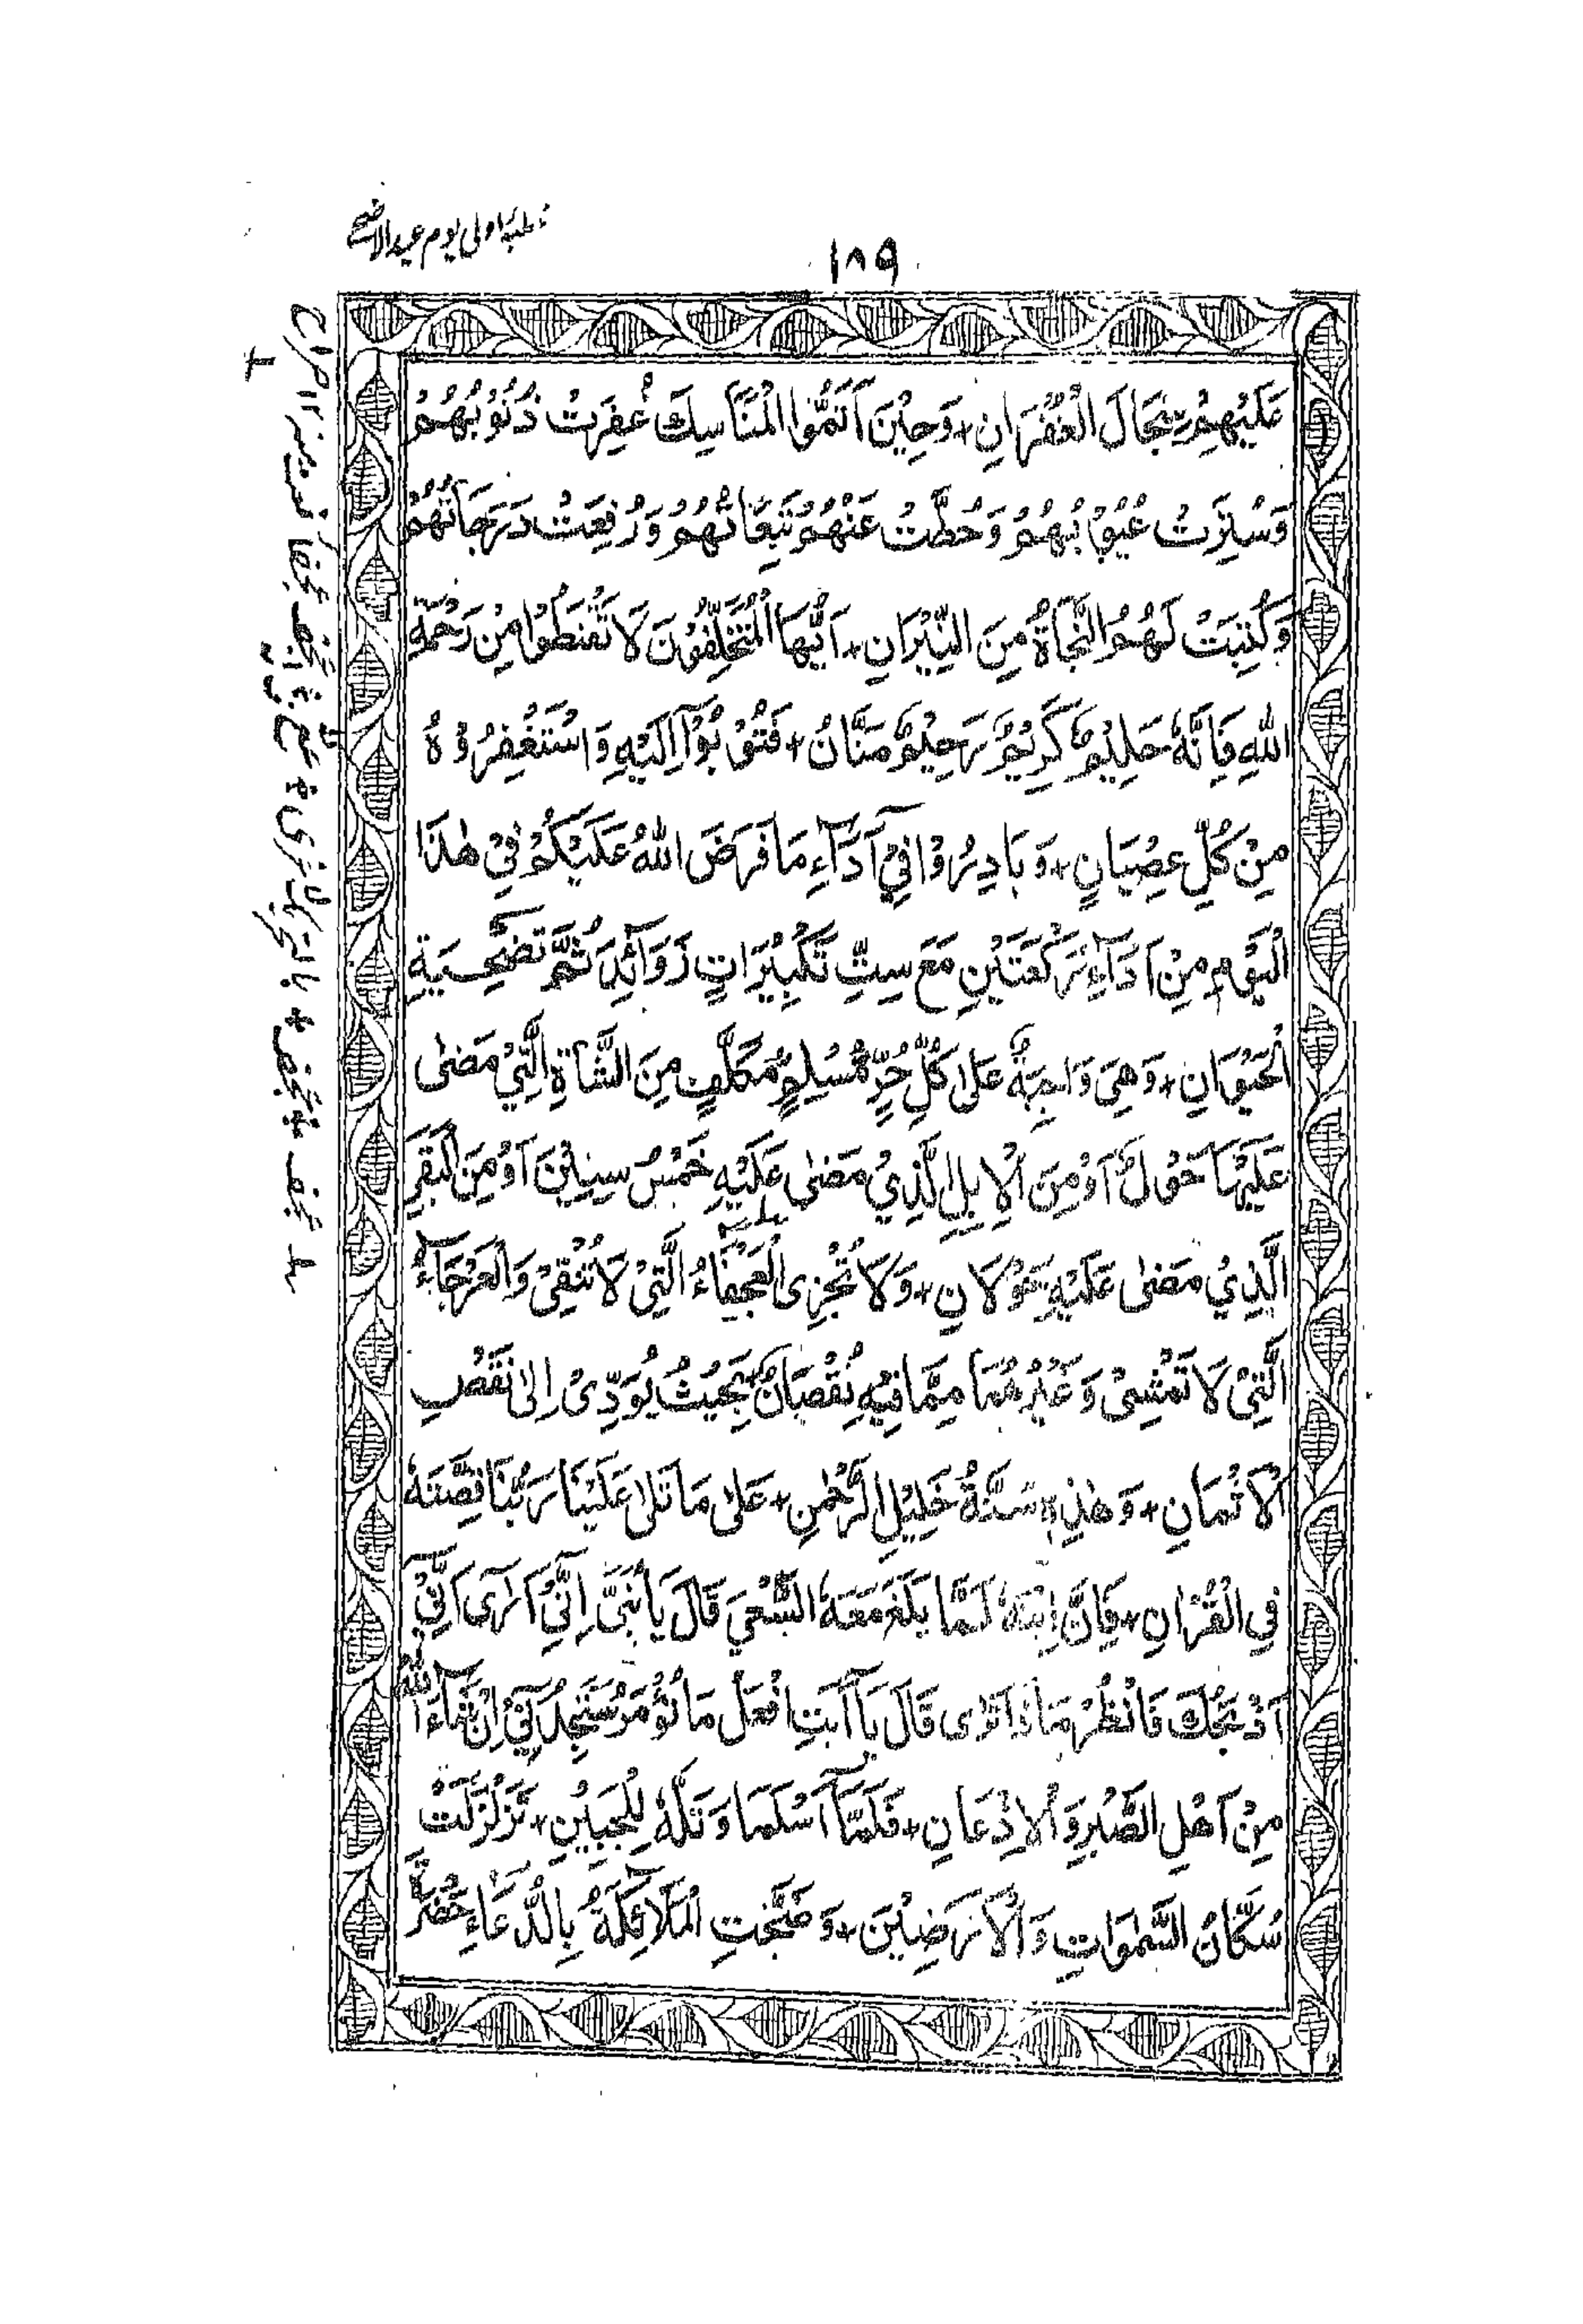 خطبۂ اولی یوم عید الاضحے
١٨٩
عَلَيْهِمْ سِجَالَ الْغُفْرَانِ + وَحِيْنَ اَتَمُّوا الْمَنَاسِكَ غُفِرَتْ ذُنُوْبُهُمْ
وَسُتِرَتْ عُيُوْبُهُمْ وَحُطَّتْ عَنْهُمْ تَبِعَاتُهُمْ وَرُفِعَتْ دَرَجَاتُهُمْ
وَكُتِبَتْ لَهُمُ النَّجَاةُ مِنَ النِّيْرَانِ + اَيُّهَا الْمُتَخَلِّفُوْنَ لَا تَقْنَطُوْا مِنْ رَحْمَةِ
اللهِ فَاِنَّهٗ حَلِيْمٌ كَرِيْمٌ رَحِيْمٌ مَنَّانٌ + فَتُوْبُوْآ اِلَيْهِ وَاسْتَغْفِرُوْهُ
مِنْ كُلِّ عِصْيَانٍ + وَبَادِرُوْا فِيْ اَدَآءِ مَا فَرَضَ اللهُ عَلَيْكُمْ فِيْ هٰذَا
الْيَوْمِ مِنْ اَدَآءِ رَكْعَتَيْنِ مَعَ سِتِّ تَكْبِيْرَاتٍ زَوَآئِدَ ثُمَّ تَضْحِيَةِ
الْحَيَوَانِ + وَهِيَ وَاجِبَةٌ عَلٰى كُلِّ حُرٍّ مُّسْلِمٍ مُّكَلَّفٍ مِنَ الشَّاةِ الَّتِيْ مَضٰى
عَلَيْهَا حَوْلٌ اَوْ مِنَ الْاِبِلِ الَّذِيْ مَضٰى عَلَيْهِ خَمْسُ سِنِيْنَ اَوْ مِنَ الْبَقَرِ
الَّذِيْ مَضٰى عَلَيْهِ حَوْلَانِ + وَلَا تُجْزِى الْعَجْفَآءُ الَّتِيْ لَا تُنْقِىْ وَالْعَرْجَآءُ
الَّتِيْ لَا تَمْشِىْ وَغَيْرُهُمَا مِمَّا فِيْهِ نُقْصَانٌ بِحَيْثُ يُوَدِّىْ اِلٰى نَقْصِ
الْاَثْمَانِ + وَهٰذِهٖ سُنَّةُ خَلِيْلِ الرَّحْمٰنِ + عَلٰى مَا تَلٰى عَلَيْنَا رَبُّنَا قِصَّتَهٗ
فِي الْقُرْاٰنِ + فَاِنَّ اِبْنَهٗ لَمَّا بَلَغَ مَعَهُ السَّعْيَ قَالَ يَا بُنَيَّ اِنِّيْ اَرٰى اَنِّيْ
اَذْبَحُكَ فَانْظُرْ مَاذَا تَرٰى قَالَ يَا اَبَتِ افْعَلْ مَا تُؤْمَرُ سَتَجِدُنِيْ اِنْ شَآءَ اللهُ
مِنْ اَهْلِ الصَّبْرِ وَالْاِذْعَانِ + فَلَمَّا اَسْلَمَا وَتَلَّهٗ لِلْجَبِيْنِ + تَزَلْزَلَتْ
سُكَّانُ السَّمٰوَاتِ وَالْاَرَضِيْنَ + وَضَجَّتِ الْمَلَآئِكَةُ بِالدُّعَآءِ حَضْرَةَ